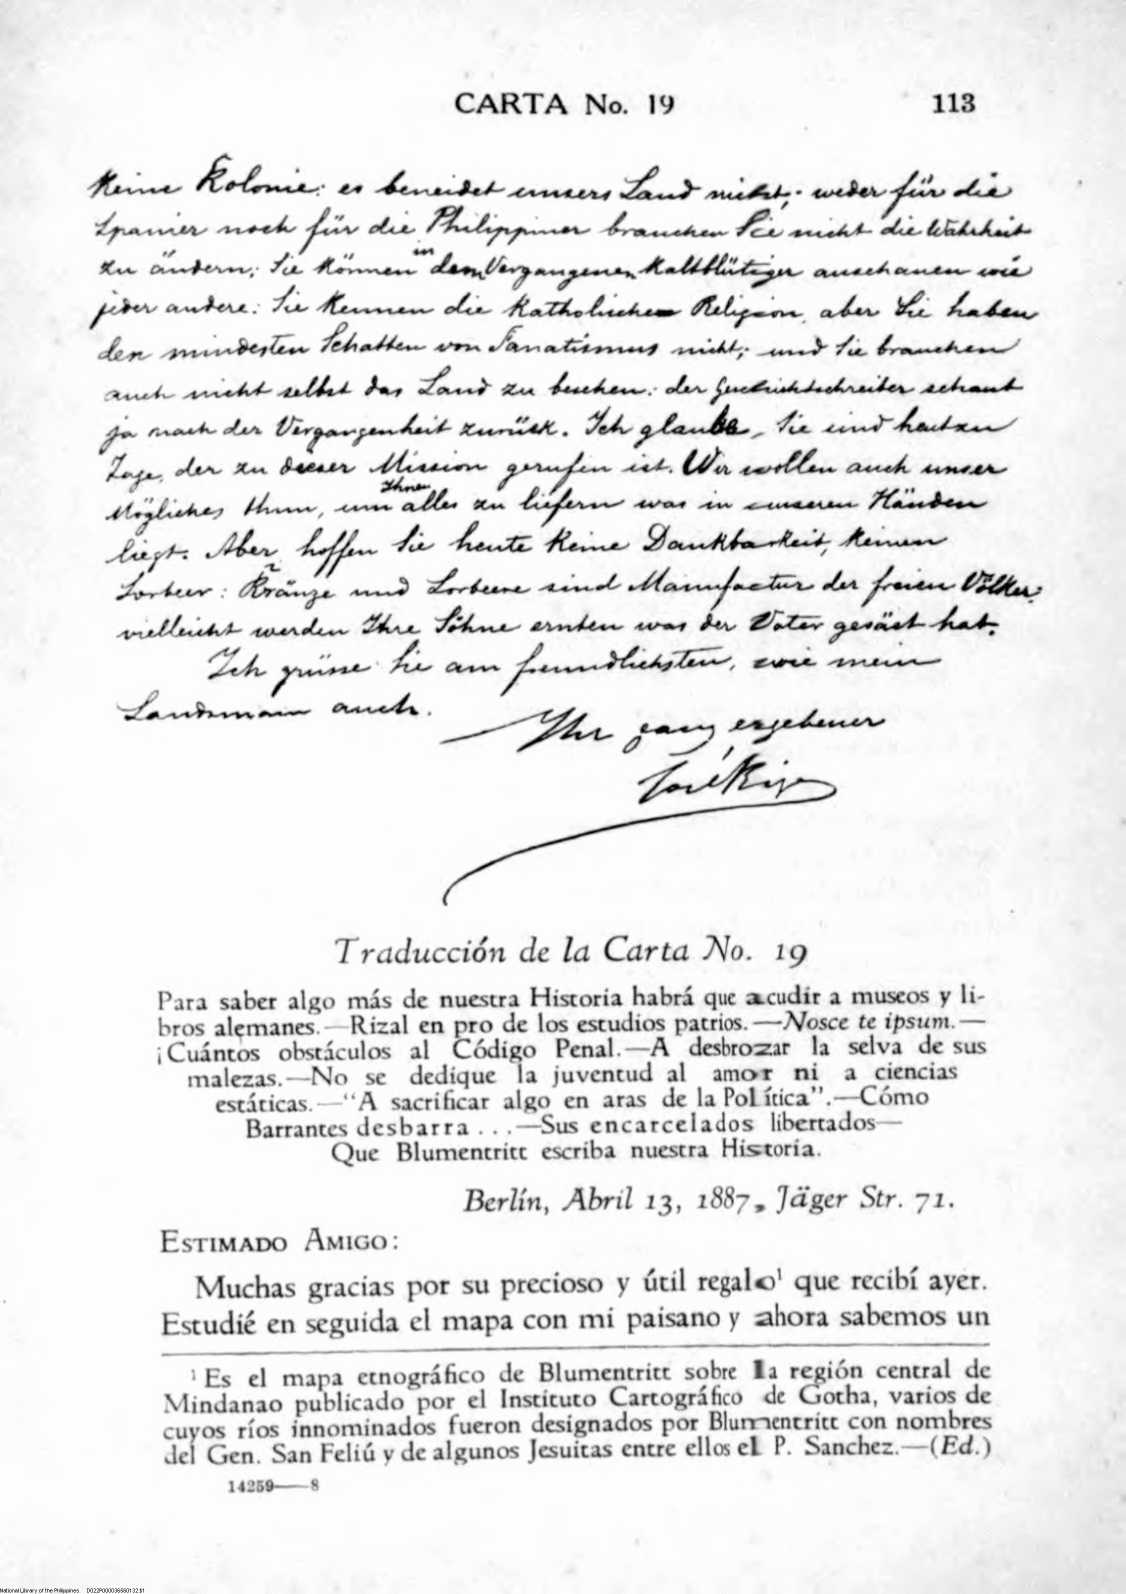 CARTA No. 19 113
Keine Kolonie: es beneidet unsers Land nicht; weder für die
Spanier noch für die Philippiner brauchen Sie nicht die Wahrheit
zu ändern; Sie können in dem Vergangenen kaltblütiger anschauen wie
jeder andere: Sie kennen die katholische Religion, aber Sie haben
den mindesten Schatten von Fanatismus nicht; und Sie brauchen
auch nicht selbst das Land zu besehen: der Geschichtschreiber schaut
ja nach der Vergangenheit zurück. Ich glaube, Sie sind heutzu
Tage, der zu dieser Mission gerufen ist. Wir wollen auch unser
Mögliches thun, um Ihnen alles zu liefern was in unseren Händen
liegt. Aber hoffen Sie heute keine Dankbarkeit, keinen
Lorbeer: Kränze und Lorbeere sind Manufactur der freien Völker:
vielleicht werden Ihre Söhne ernten was der Vater gesäst hat.
Ich grüsse Sie am freundlichsten, wie mein
Landsmann auch.
Ihr ganz ergebener
José Rizal
Traducción de la Carta No. 19
Para saber algo más de nuestra Historia habrá que acudir a museos y li-
bros alemanes.—Rizal en pro de los estudios patrios.—Nosce te ipsum.—
¡Cuántos obstáculos al Código Penal.—A desbrozar la selva de sus
malezas.—No se dedique la juventud al amor ni a ciencias
estáticas.—"A sacrificar algo en aras de la Política".—Cómo
Barrantes desbarra . . .—Sus encarcelados libertados—
Que Blumentritt escriba nuestra Historia.
Berlín, Abril 13, 1887, Jäger Str. 71.
ESTIMADO AMIGO:
Muchas gracias por su precioso y útil regalo¹ que recibí ayer.
Estudié en seguida el mapa con mi paisano y ahora sabemos un
¹ Es el mapa etnográfico de Blumentritt sobre la región central de
Mindanao publicado por el Instituto Cartográfico de Gotha, varios de
cuyos ríos innominados fueron designados por Blumentritt con nombres
del Gen. San Feliú y de algunos Jesuitas entre ellos el P. Sanchez.—(Ed.)
14259——8
National Library of the Philippines